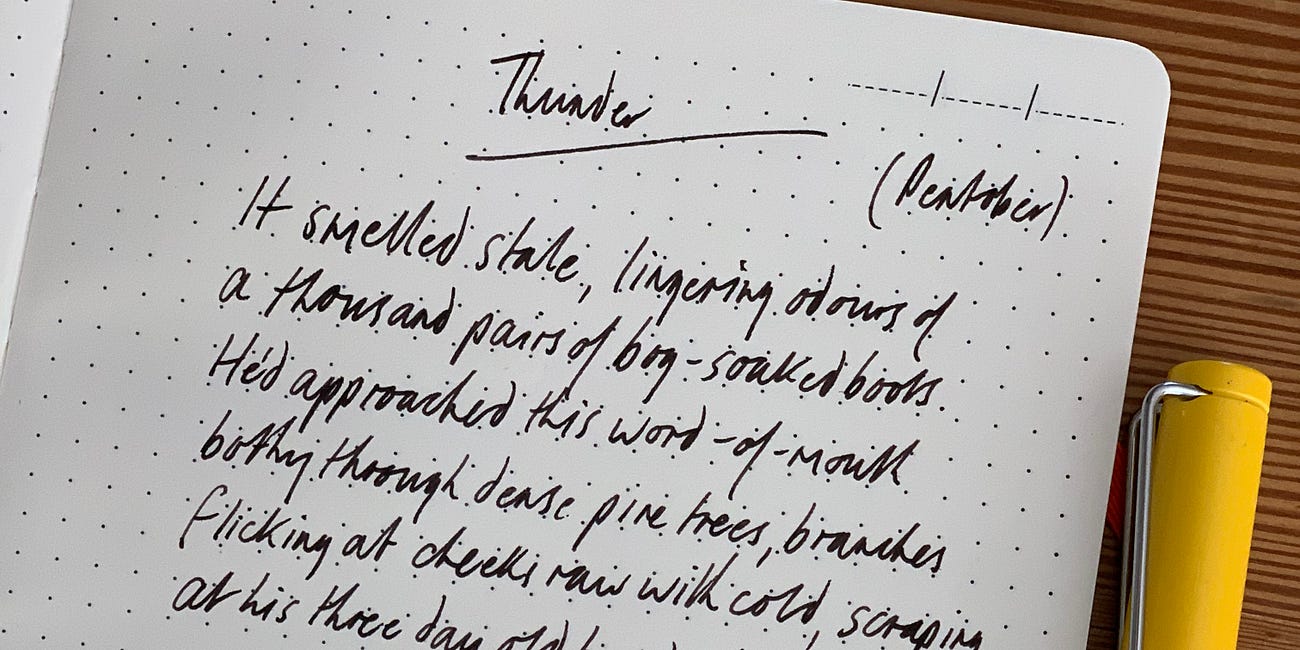 Thunder
(Pentober)
It smelled stale, lingering odours of
a thousand pairs of bog-soaked boots.
He'd approached this word-of-mouth
bothy through dense pine trees, branches
flicking at cheeks raw with cold, scraping
at his three day old